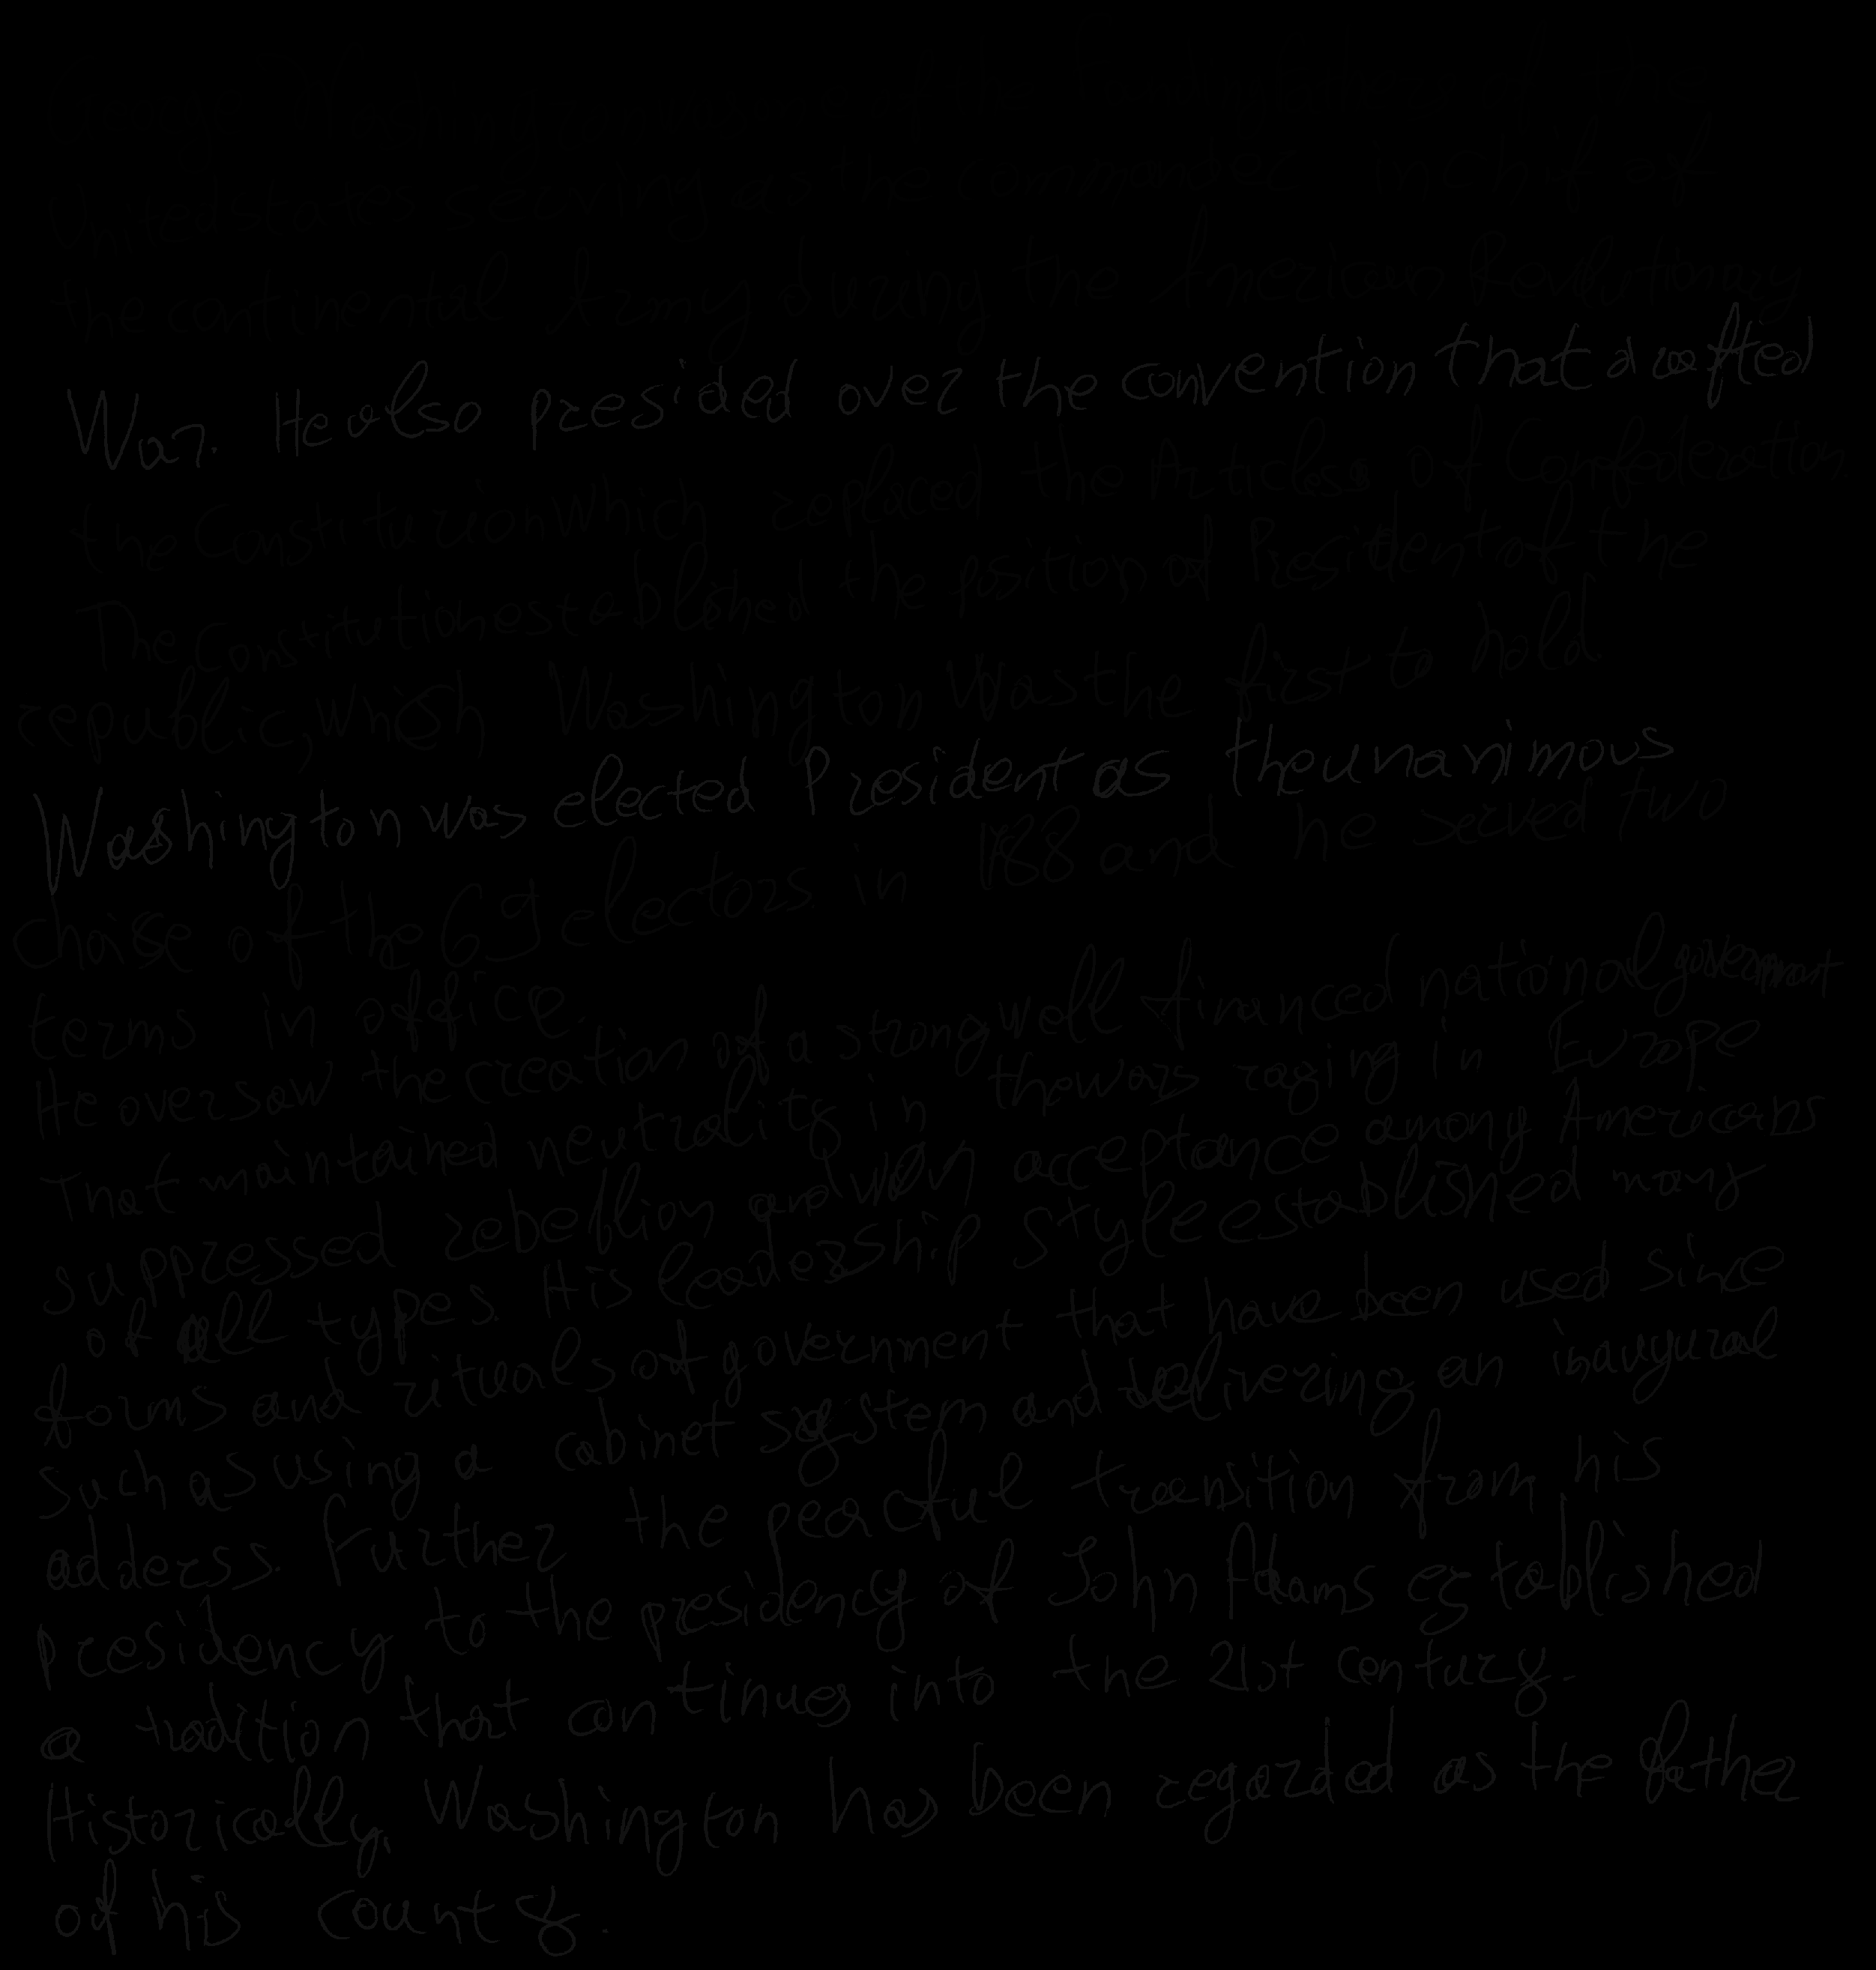 United states serving as the commander inchif of
the continental Army during the American Revolutionary
War. He also presided over the convention that drafted
the Constitution which replaced the Articles of Confederation.
The Constitution established the position of President of the
republic, which Washington was the first to hold.
Washington was elected President as the unanimous
choise of the 69 electors in 188 and he served two
terms in office.
He oversaw the creation of a strong well financed national government
That maintained neutrality in the wars raging in Europe
suppressed rebellion and won acceptance among Americans
of all types. His leadership style established many
forms and rituals of government that have been used since
such as using a cabinet system and delivering an inaugural
adderss. Further the peacful transition from his
presidency to the presidency of John Adams established
a tradition that continues into the 21st century.
Historically, Washington has been regarded as the father
of his county.